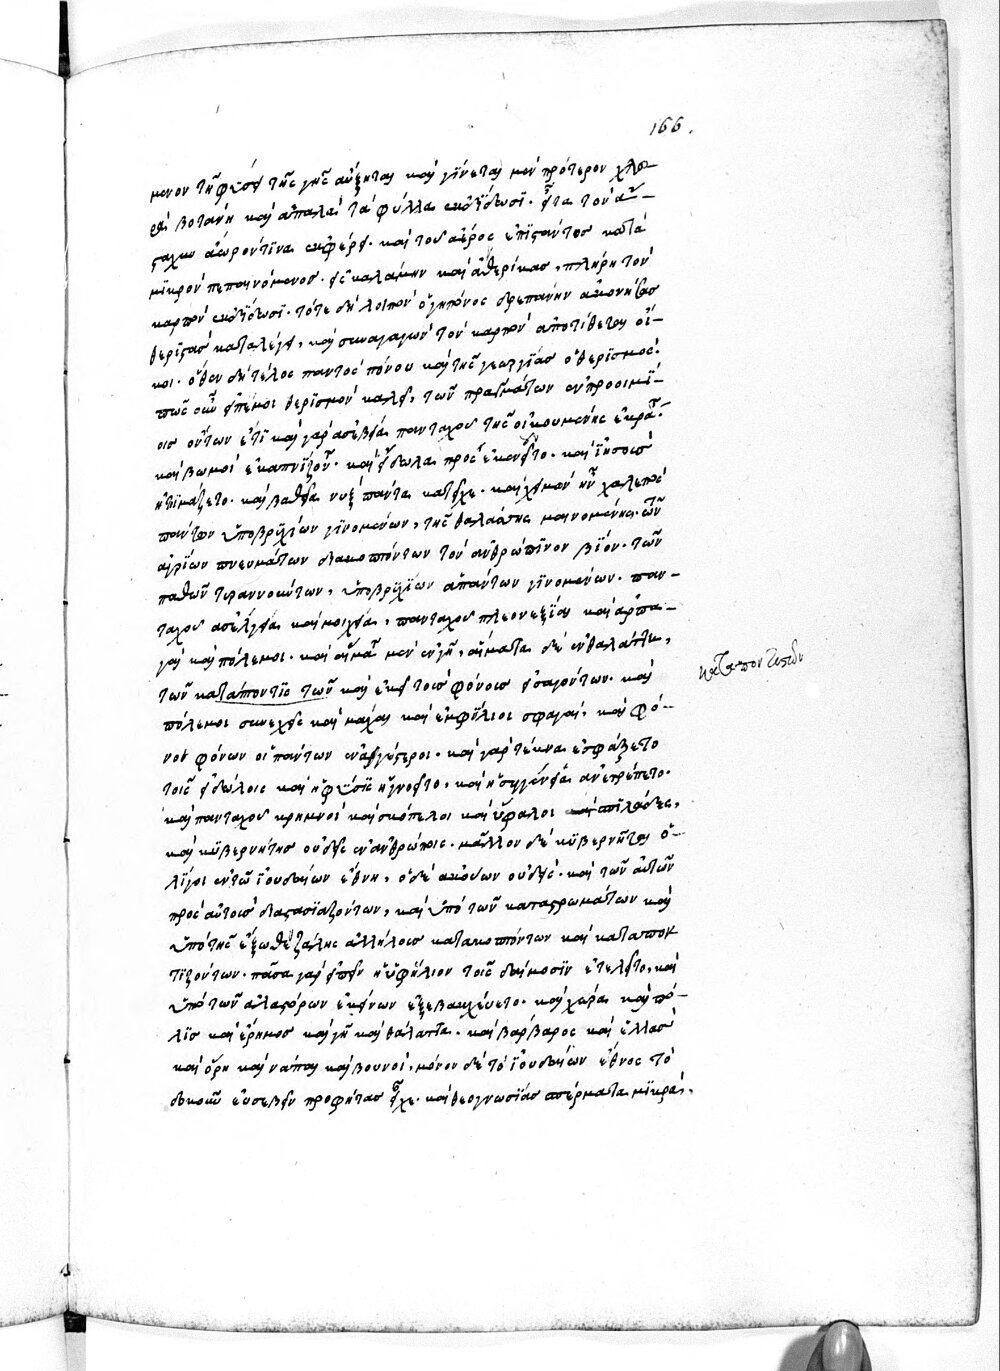 166.
μενον τῇ φύσει τῆς γῆς αὔξηται καὶ γίνεται μὲν πρότερον χλο-
ρὰ βοτάνη καὶ ἁπαλὰ τὰ φύλλα ἐκδίδωσι. εἶτα τὸν ἄ-
σταχυν ἄωρόν τινα ἐκφέρει. καὶ τοῦ ἀέρος ἐπιστάντος κατὰ
μικρὸν πεπαινόμενος. εἰς καλάμην καὶ ἀθέρικας, πλήρη τὸν
καρπὸν ἐκδίδωσι. τότε δὴ λοιπὸν ὁ γηπόνος δρεπάνην ἀκονήσας
θερίσας καταλέγει, καὶ συναγαγὼν τὸν καρπὸν ἀποτίθεται οἴ-
κοι. ὅθεν δὴ τέλος παντὸς πόνου καὶ τῆς γεωργίας ὁ θερισμός.
πῶς οὖν εἰπέ μοι θερισμὸν καλεῖ, τῶν πραγμάτων ἐν προοιμί-
οις ὄντων ἔτι καὶ γὰρ ἀσέβεια πανταχοῦ τῆς οἰκουμένης ἐκράτει.
καὶ βωμοὶ ἐκαπνίζοντο. καὶ εἴδωλα προσεκυνεῖτο. καὶ ἰησοῦς
ἠτιμάζετο. καὶ βαθεῖα νὺξ πάντα κατεῖχε. καὶ χειμὼν ἦν χαλεπὸς
πάντων ὑποβρυχίων γινομένων, τῆς θαλάσσης μαινομένης. τῶν
ἀγρίων πνευμάτων διακοπτόντων τὸν ἀνθρώπινον βίον. τῶν
παθῶν τυραννούντων, ὑποβρυχίων ἁπάντων γινομένων. παν-
ταχοῦ ἀσέλγεια καὶ μοιχεία, πανταχοῦ πλεονεξίαι καὶ ἁρπα-
γαὶ καὶ πόλεμοι. καὶ αἷμα μὲν ἐν γῇ, αἵματα δὲ ἐν θαλάττῃ,
τῶν καταποντιστῶν καὶ ἐκεῖ τοὺς φόνους εἰσαγόντων. καὶ
καταποντιζόν
πόλεμοι συνεχεῖς καὶ μάχαι καὶ ἐμφύλιοι σφαγαὶ, καὶ φό-
νοι φόνων οἱ πάντων ἐναγέστεροι. καὶ γὰρ τέκνα ἐσφάζετο
τοῖς εἰδώλοις καὶ ἡ φύσις ἠγνοεῖτο, καὶ ἡ συγγένεια ἀνετρέπετο.
καὶ πανταχοῦ κρημνοὶ καὶ σκόπελοι καὶ ὕφαλοι καὶ σπιλάδες,
καὶ κυβερνήτης οὐδεὶς ἐν ἀνθρώποις. μᾶλλον δὲ κυβερνῆται ὀ-
λίγοι ἐν τῷ ἰουδαίων ἔθνη, ὁ δὲ ἀκούων οὐδείς. καὶ τῶν αὐτῶν
πρὸς αὐτοὺς διαστασιαζόντων, καὶ ὑπὸ τῶν καταστρωμάτων καὶ
ὑπὸ τῆς ἔξωθεν ζάλης ἀλλήλους κατακοπτόντων καὶ καταπον
τιζόντων. πᾶσα γὰρ εἰπεῖν ἡ ὑφήλιον τοῖς δαίμοσιν ἐτελεῖτο, καὶ
ὑπὸ τῶν ἀλαστόρων ἐκείνων ἐξεβακχεύετο. καὶ χώρα καὶ πό-
λις καὶ ἔρημος καὶ γῆ καὶ θάλαττα. καὶ βάρβαρος καὶ ἑλλὰς
καὶ ὄρη καὶ νάπαι καὶ βουνοί, μόνον δὲ τὸ ἰουδαίων ἔθνος τὸ
δοκοῦν εὐσεβεῖν προφήτας εἶχε. καὶ θεογνωσίας σπέρματα μικρά,